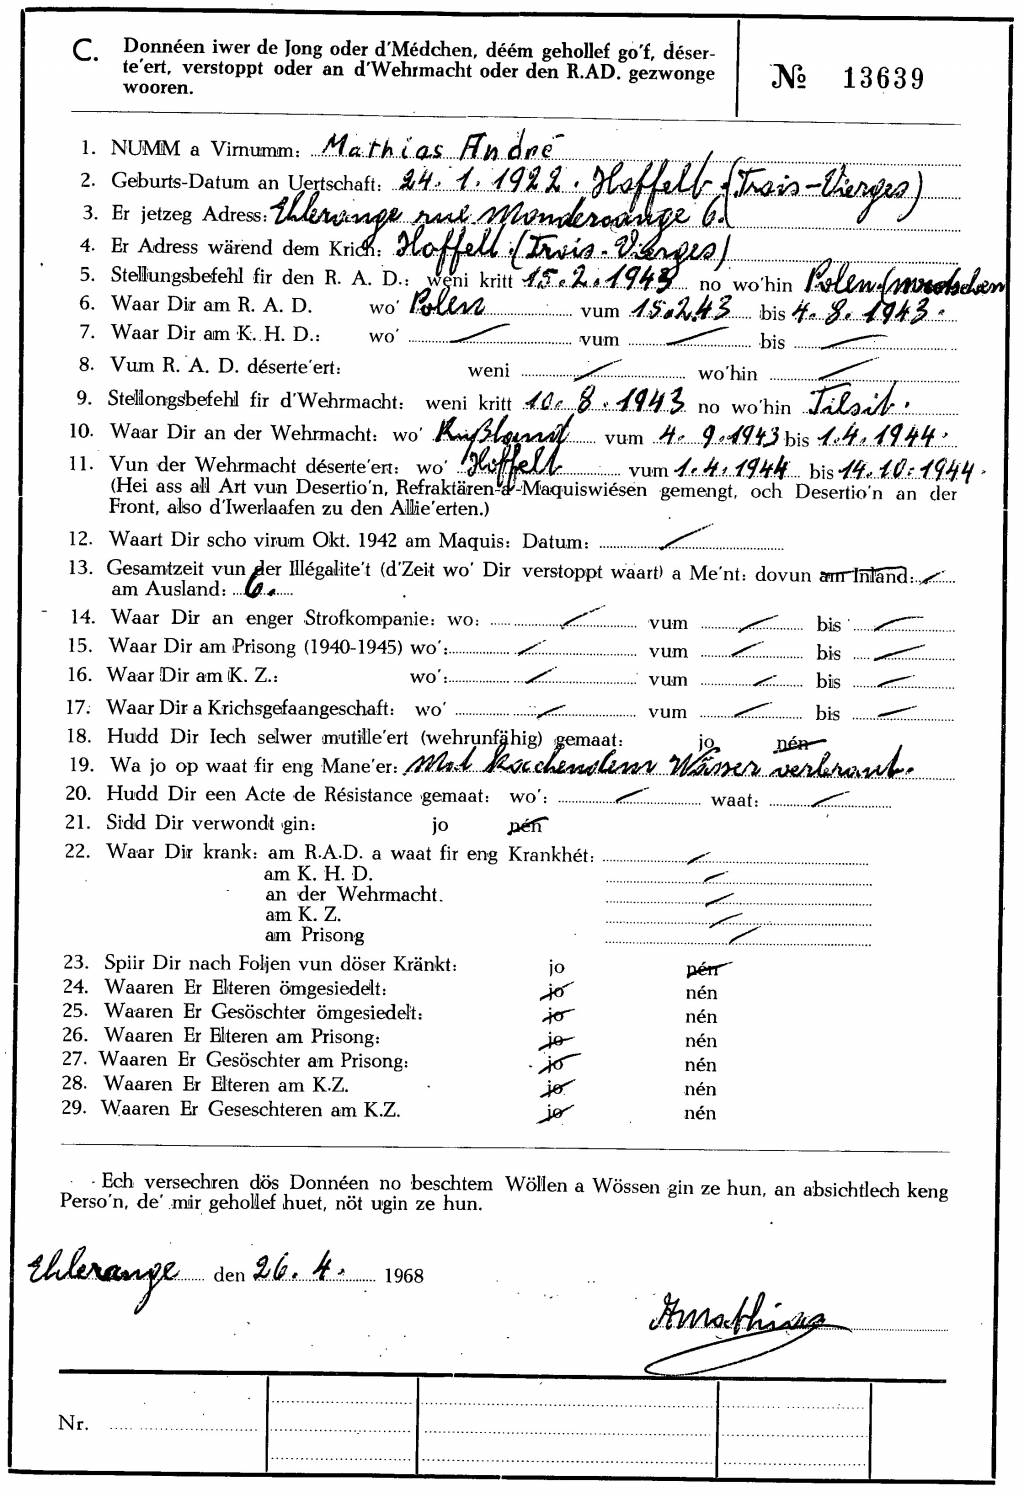 C. Donnéen iwer de Jong oder d'Médchen, déém gehollef go'f, déser-
te'ert, verstoppt oder an d'Wehrmacht oder den R.AD. gezwonge
wooren.
№ 13639
1. NUMM a Virnumm: Mathias André
2. Geburts-Datum an Uertschaft: 24.1.1922. Hoffelt (Trois-Vierges)
3. Er jetzeg Adress: Ehlerange rue Mondercange 6.
4. Er Adress wärend dem Krich: Hoffelt (Trois-Vierges)
5. Stellungsbefehl fir den R. A. D.: weni kritt 15.2.1943 no wo'hin Polen
6. Waar Dir am R. A. D. wo' Polen vum 15.2.43 bis 4.8.1943.
7. Waar Dir am K. H. D.: wo' vum bis
8. Vum R. A. D. déserte'ert: weni wo'hin
9. Stellongsbefehl fir d'Wehrmacht: weni kritt 10.8.1943 no wo'hin Tilsit.
10. Waar Dir an der Wehrmacht: wo' Rußland vum 4.9.1943 bis 1.4.1944.
11. Vun der Wehrmacht déserte'ert: wo' Hoffelt vum 1.4.1944 bis 14.10.1944.
(Hei ass all Art vun Desertio'n, Refraktären-a-Maquiswiésen gemengt, och Desertio'n an der
Front, also d'Iwerlaafen zu den Allie'erten.)
12. Waart Dir scho virum Okt. 1942 am Maquis: Datum:
13. Gesamtzeit vun der Illégalite't (d'Zeit wo' Dir verstoppt waart) a Me'nt: dovun am Inland:
am Ausland: 6.
14. Waar Dir an enger Strofkompanie: wo: vum bis
15. Waar Dir am Prisong (1940-1945) wo': vum bis
16. Waar Dir am K. Z.: wo': vum bis
17. Waar Dir a Krichsgefaangeschaft: wo' vum bis
18. Hudd Dir Iech selwer mutille'ert (wehrunfähig) gemaat: jo nén
19. Wa jo op waat fir eng Mane'er: Mat kochendem Wasser verbrant.
20. Hudd Dir een Acte de Résistance gemaat: wo': waat:
21. Sidd Dir verwondt gin: jo nén
22. Waar Dir krank: am R.A.D. a waat fir eng Krankhét:
am K. H. D.
an der Wehrmacht.
am K. Z.
am Prisong
23. Spiir Dir nach Foljen vun döser Kränkt: jo nén
24. Waaren Er Elteren ömgesiedelt: jo nén
25. Waaren Er Gesöschter ömgesiedelt: jo nén
26. Waaren Er Elteren am Prisong: jo nén
27. Waaren Er Gesöschter am Prisong: jo nén
28. Waaren Er Elteren am K.Z. jo nén
29. Waaren Er Geseschteren am K.Z. jo nén
Ech versechren dös Donnéen no beschtem Wöllen a Wössen gin ze hun, an absichtlech keng
Perso'n, de' mir gehollef huet, nöt ugin ze hun.
Ehlerange den 26.4. 1968
AMathias
Nr.